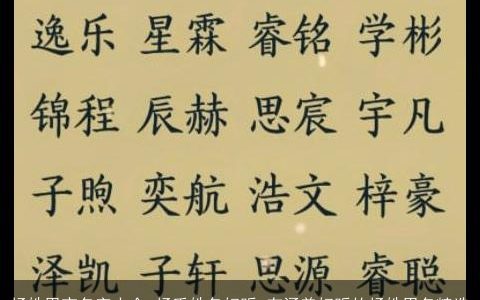 逸乐 星霖 睿铭 学彬
锦程 辰赫 思宸 宇凡
子煦 奕航 浩文 梓豪
泽凯 子轩 思源 睿聪